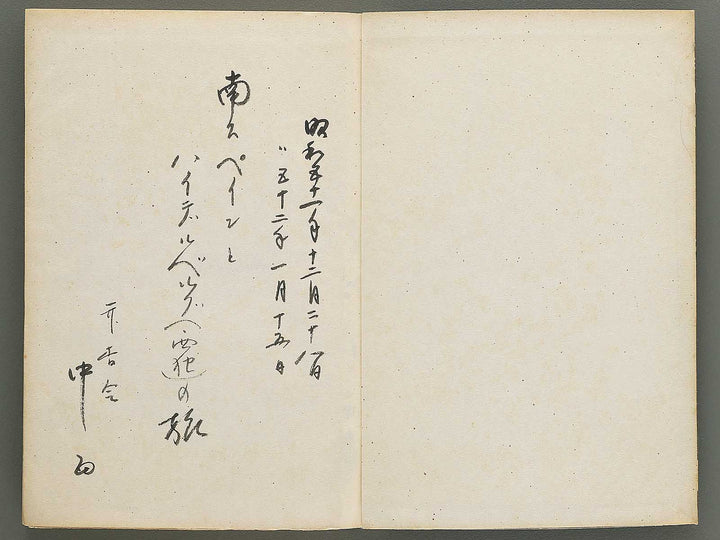 昭和五十一年十二月二十八日
〃五十二年一月十五日
南スペインと
ハイデルベルグへ(西独)の
旅